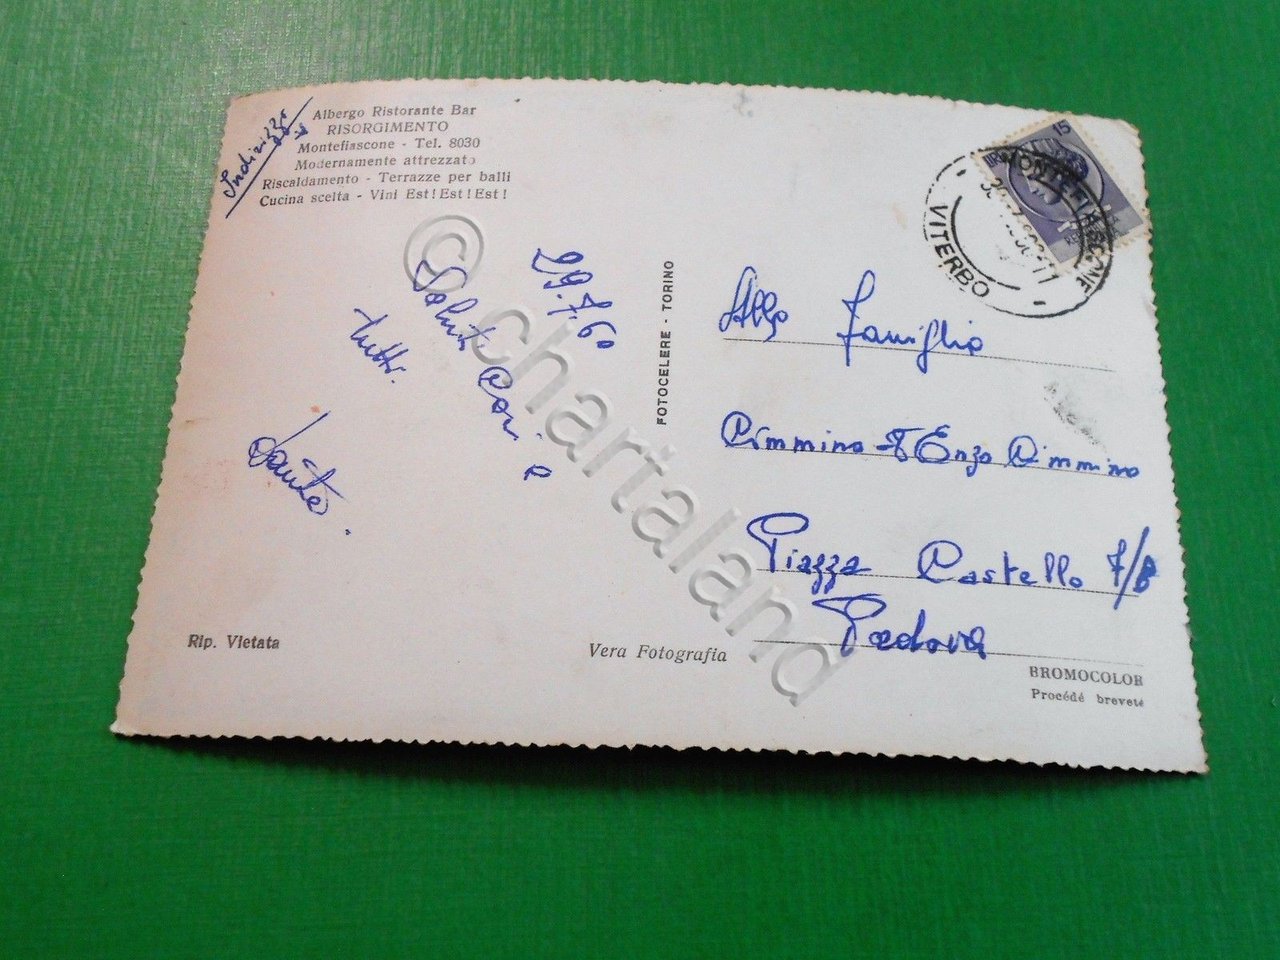 Indirizzo
Albergo Ristorante Bar
RISORGIMENTO
Montefiascone - Tel. 8030
Modernamente attrezzato
Riscaldamento - Terrazze per balli
Cucina scelta - Vini Est! Est! Est!
29.7.60
Saluti Cari a
tutti.
Dante.
Rip. Vietata
Vera Fotografia
FOTOCELERE - TORINO
15
MONTEFIASCONE
VITERBO
Alla Famiglia
Cimmino Enzo Cimmino
Piazza Castello 7/B
Padova
BROMOCOLOR
Procédé breveté
© chartaland